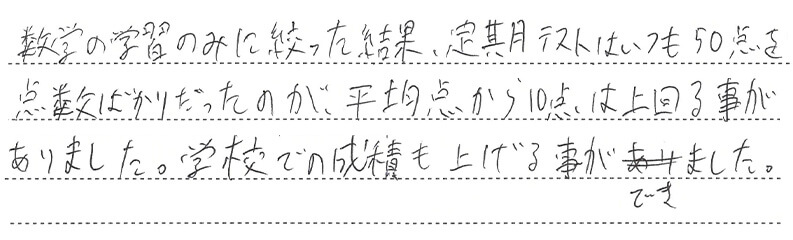 数学の学習のみに絞った結果、定期テストはいつも50点を
点数ばかりだったのが、平均点から10点は上回る事が
ありました。学校での成績も上げる事がありました。
でき